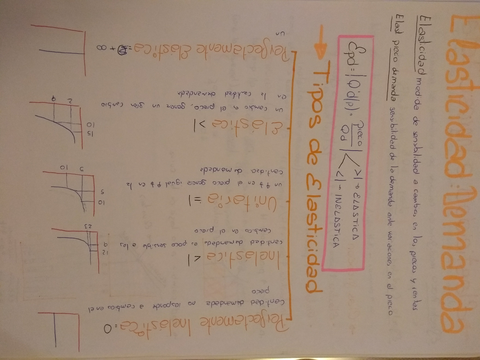 Elasticidad: Demanda
Elasticidad medida de sensibilidad a cambios en los precios y
Elad precio demanda sensibilidad de la demanda ante variaciones en el precio
Epd = | Q'd(p) · precio / Qd |
> 1 = ELÁSTICA
< 1 = INELÁSTICA
→ Tipos de Elasticidad
Perfectamente Inelástica = 0
Cantidad demandada no responde a cambios en el
precio
Inelástica < 1
cantidad demandada es poco sensible a los
cambios en el precio
Unitaria = 1
un en el precio genera igual en la
cantidad demandada
Elástica > 1
un cambio en el precio, genera un gran cambio
en la cantidad demandada
Perfectamente Elástica = + ∞
un
10
5
5
10
15
10